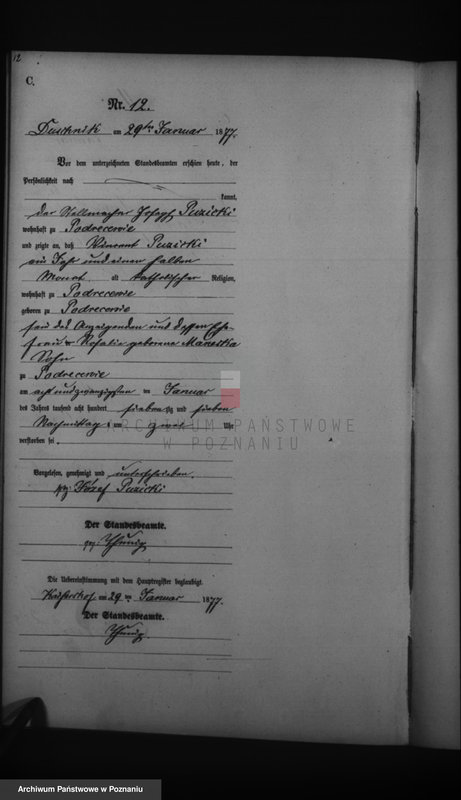 12
C.
Nr. 12.
Duschnik am 29ten Januar 1877.
Vor dem unterzeichneten Standesbeamten erschien heute, der
Persönlichkeit nach
kannt,
der Stellmacher Joseph Puzicki
wohnhaft zu Podrecewie
und zeigte an, daß Vincent Puzicki
ein Jahr und einen halben
Monat alt katholischer Religion,
wohnhaft zu Podrecewie
geboren zu Podrecewie
des Anzeigenden und dessen Ehe-
frau Rosalie geborene
Sohn
zu Podrecewie
am acht und zwanzigsten ten Januar
des Jahres tausend acht hundert siebenzig und sieben
Nachmittags um zwei Uhr
verstorben sei.
ARCHIWUM PAŃSTWOWE
W POZNANIU
Vorgelesen, genehmigt und unterschrieben.
gez. Józef Puzicki
Der Standesbeamte.
gez.
Die Uebereinstimmung mit dem Hauptregister beglaubigt.
am 29 ten Januar 1877.
Der Standesbeamte.
Archiwum Państwowe w Poznaniu